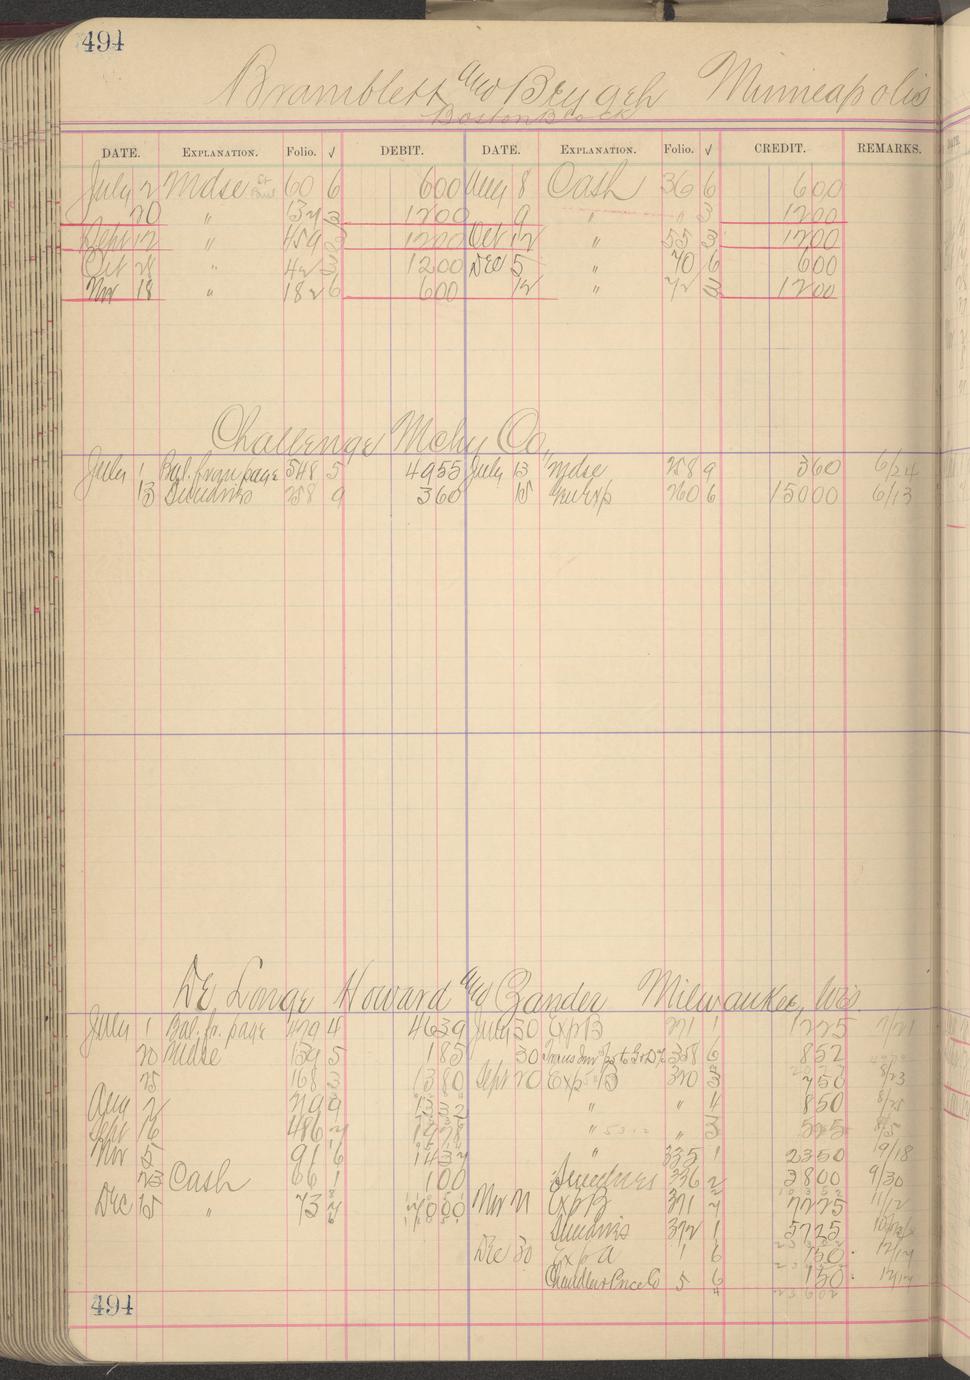 494
Bramblett and Beygeh Minneapolis
Boston Block
DATE. EXPLANATION. Folio. √ DEBIT. DATE. EXPLANATION. Folio. √ CREDIT. REMARKS.
July 2 Mdse 60 6 600 Aug 8 Cash 36 6 600
20 " 134 3 1200 9 " " 3 1200
Sept 12 " 459 3 1200 Oct 12 " 55 3 1200
Oct 28 " 42 3 1200 Dec 5 " 70 6 600
Nov 18 " 182 6 600 12 " 72 3 1200
Challenge Mchy Co.
July 1 Bal. from page 548 5 4955 July 13 Mdse 258 9 360 6/24
13 Sundries 258 9 360 15 260 6 15000 6/13
De Longe Howard and Zander Milwaukee, Wis.
July 1 Bal. fr. page 479 4 4639 July 30 Exp B 271 1 1225 7/21
20 Mdse 154 5 185 30 358 6 852
25 168 3 1380 Sept 20 Exp B 320 3 750 8/23
Aug 2 219 9 1332 " " " 850 8/28
Sept 16 486 2 " " 3 525
Nov 5 91 6 1432 " 335 1 2350 9/18
23 Cash 66 1 100 Sundries 336 2 3800 9/30
Dec 15 " 73 7000 Nov 21 Exp B 371 7 7225 11/12
Sundries 372 1 5725
Dec 30 Exp A 1 6 150 12/17
Chandler & Price Co 5 6 150 12/17
23602
494